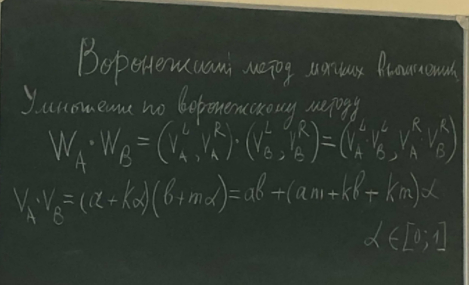 Воронежский метод мягких вычислений
Умножение по воронежскому методу
W_A · W_B = (V_A^L, V_A^R) · (V_B^L, V_B^R) = (V_A^L · V_B^L, V_A^R · V_B^R)
V_A · V_B = (a + kα)(b + mα) = ab + (am + kb + km)α
α ∈ [0; 1]